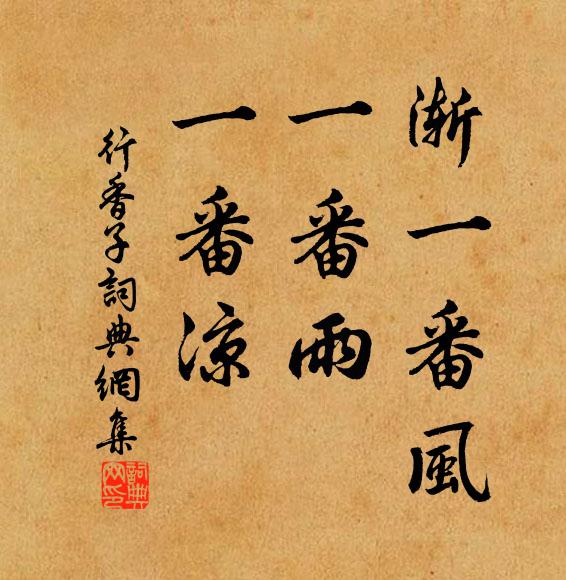 漸一番風
一番雨
一番涼
行香子詞典網集
詞典
网印